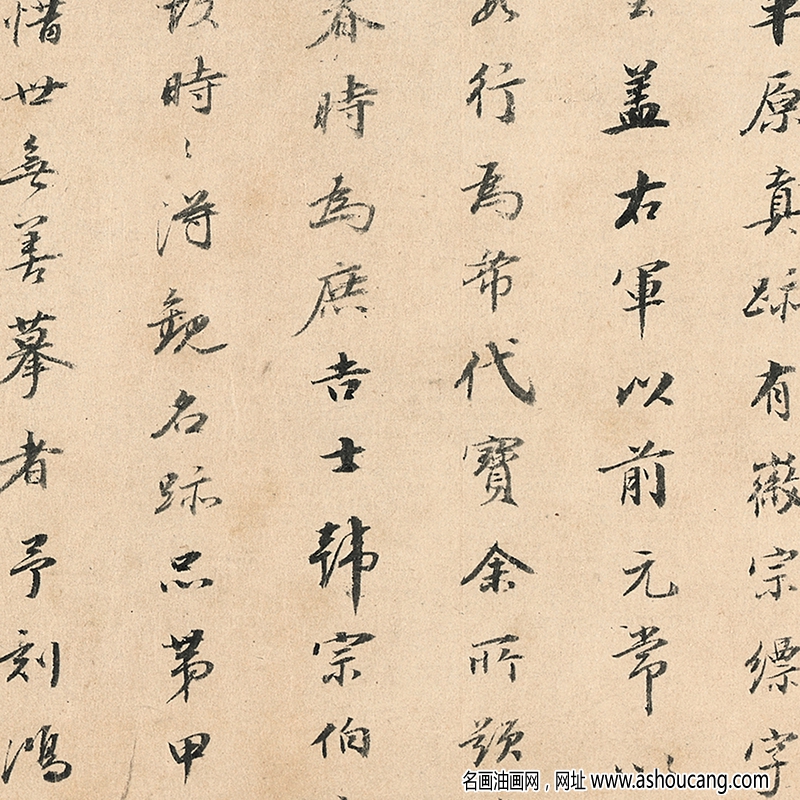 原真跡有徽宗縹字
盖右軍以前元常
行為希代寶余所題
春時為庶吉士韓宗伯
時〻得觀名跡品第甲
惜世無善摹者予刻鴻
名画油画网，网址 www.ashoucang.com